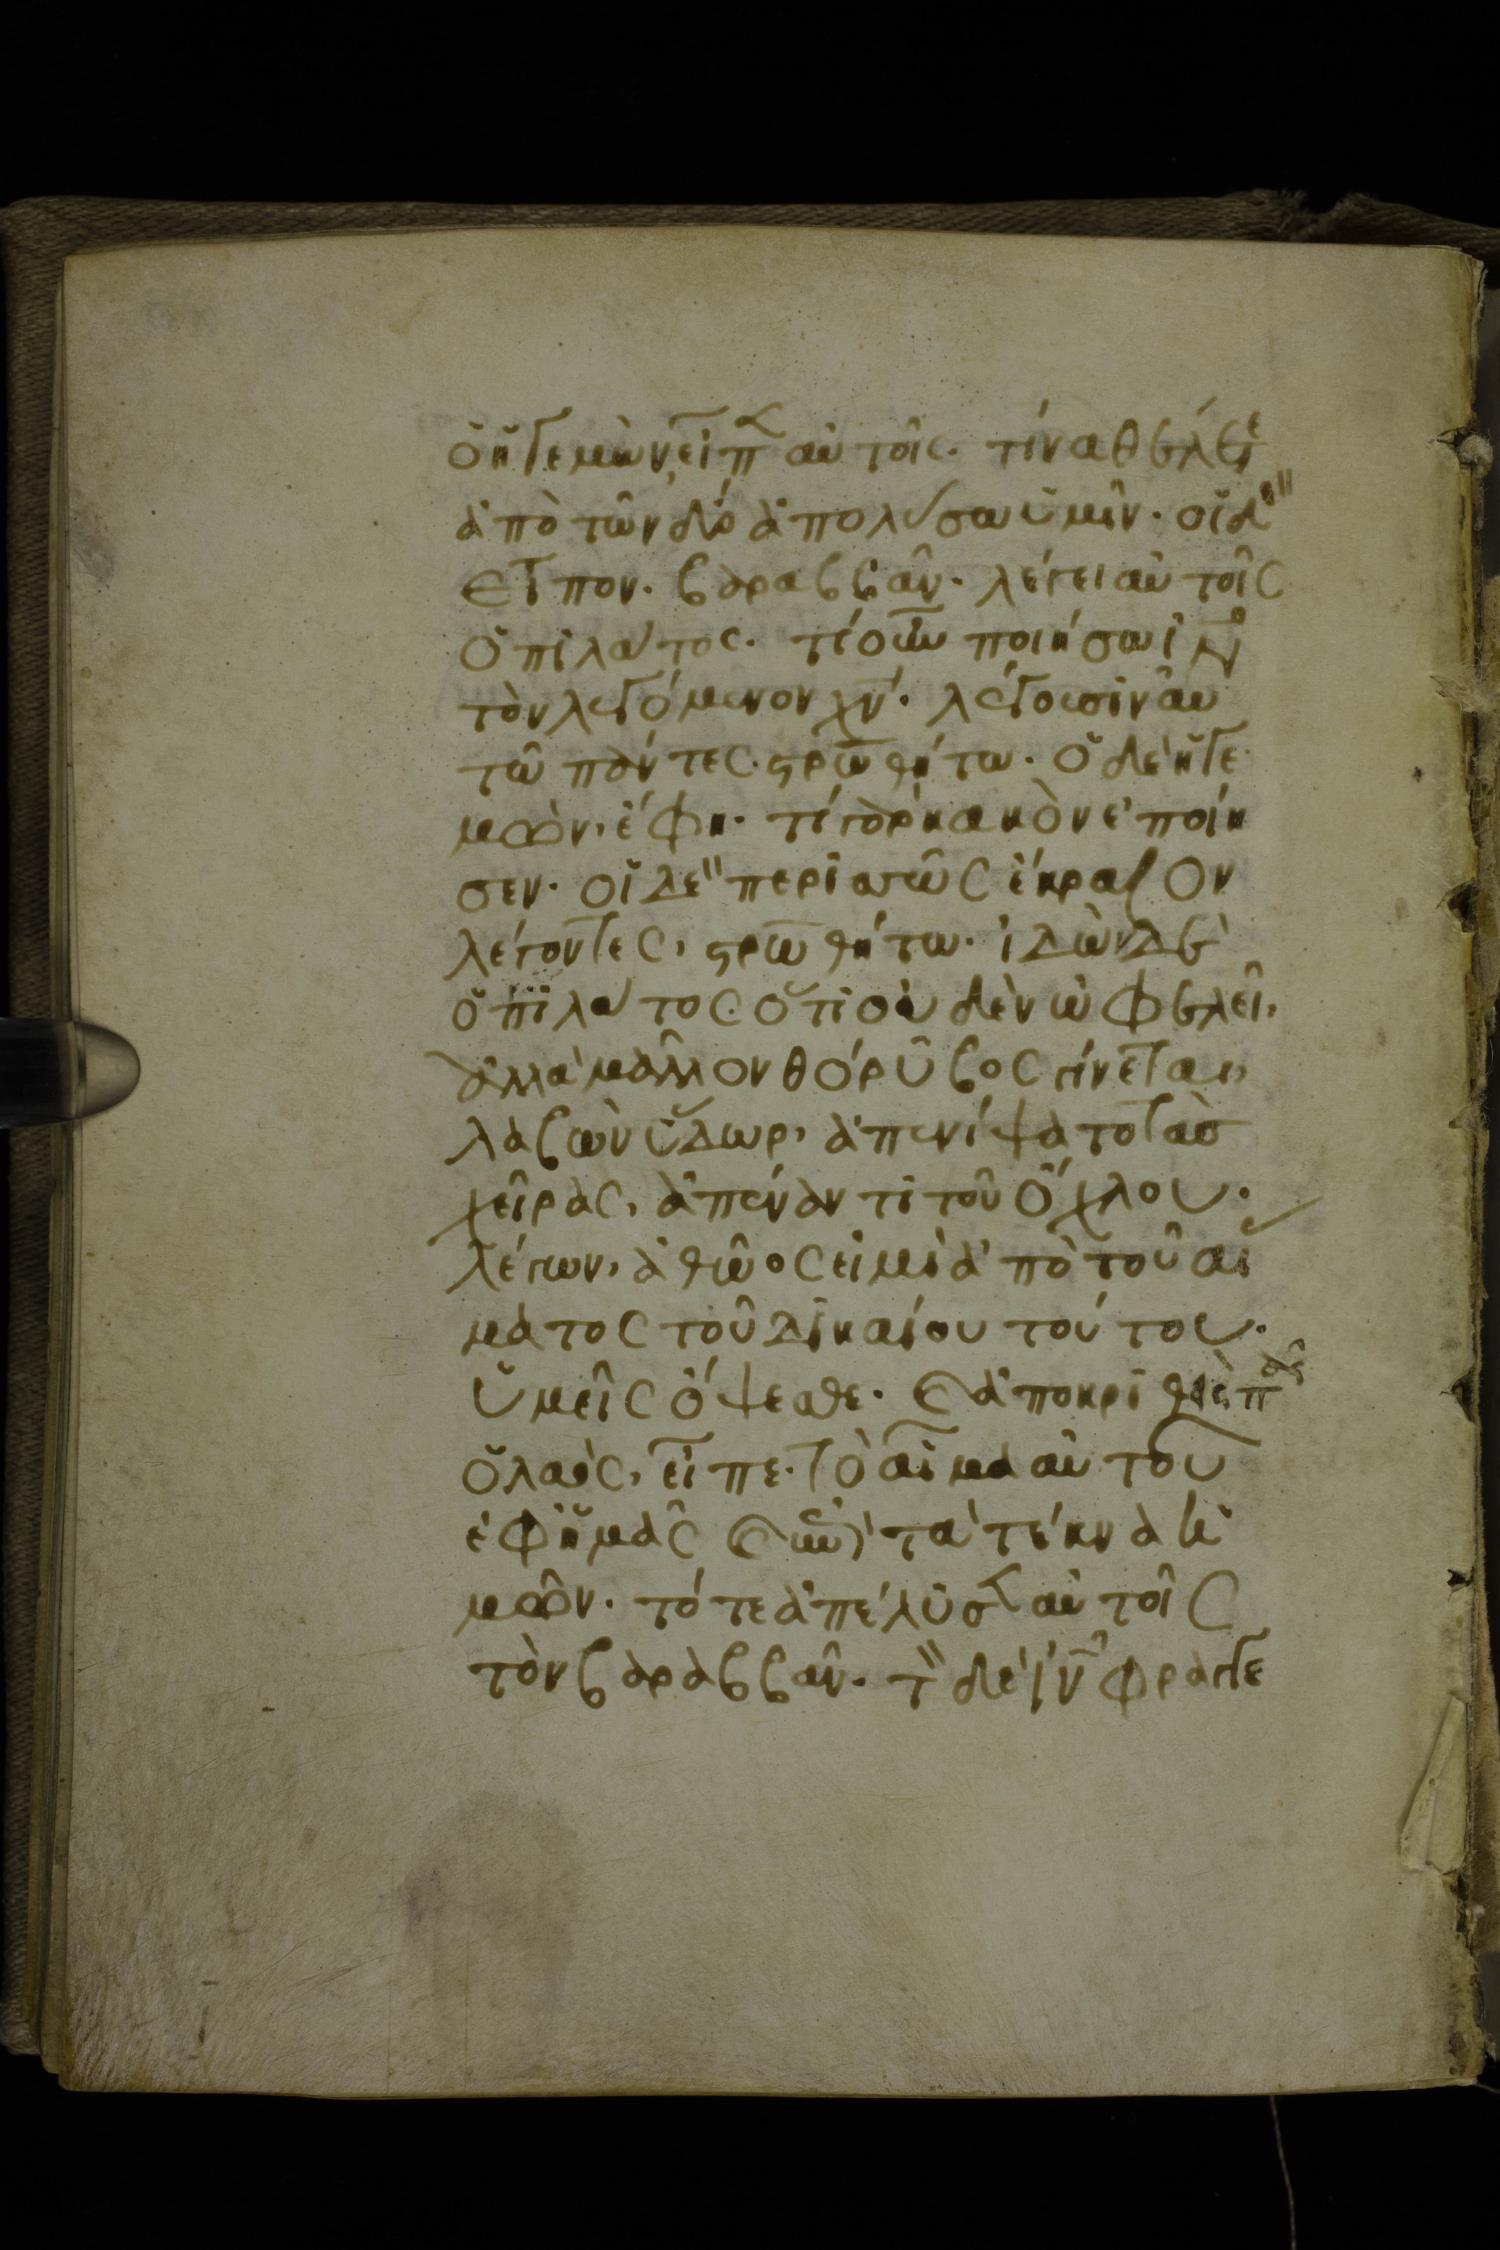 ὁ ἡγεμὼν εἶπ αὐτοῖς. τίνα θέλετε
ἀπὸ τῶν δύο ἀπολύσω ὑμῖν. οἱ δὲ
εἶπον. βαραββᾶν. λέγει αὐτοῖς
ὁ πιλάτος. τί οὖν ποιήσω ιν
τὸν λεγόμενον χν. λέγουσιν αὐ
τῶ πάντες. στρωθήτω. ὁ δὲ ἡγε
μὼν, ἔφη. τί γὰρ κακὸν ἐποίη
σεν. οἱ δὲ περισσῶς ἔκραζον
λέγοντες, στρωθήτω. ἰδὼν δὲ
ὁ πιλάτος ὅτι οὐδὲν ὠφελεῖ,
ἀλλὰ μᾶλλον θόρυβος γίνεται,
λαβὼν ὕδωρ, ἀπενίψατο τὰσ
χεῖρας, ἀπέναντι τοῦ ὄχλου.
λέγων, ἀθῶος εἰμὶ ἀπὸ τοῦ αἵ
ματος τοῦ δικαίου τούτου.
ὑμεῖς ὄψεσθε. καὶ ἀποκριθεὶς π
ὁ λαὸς, εἶπε. τὸ αἷμα αὐτοῦ
ἐφ ἡμᾶς καὶ ἐπὶ τὰ τέκνα ἡ
μῶν. τότε ἀπέλυσεν αὐτοῖς
τὸν βαραββᾶν. τ δὲ ιν φραγε